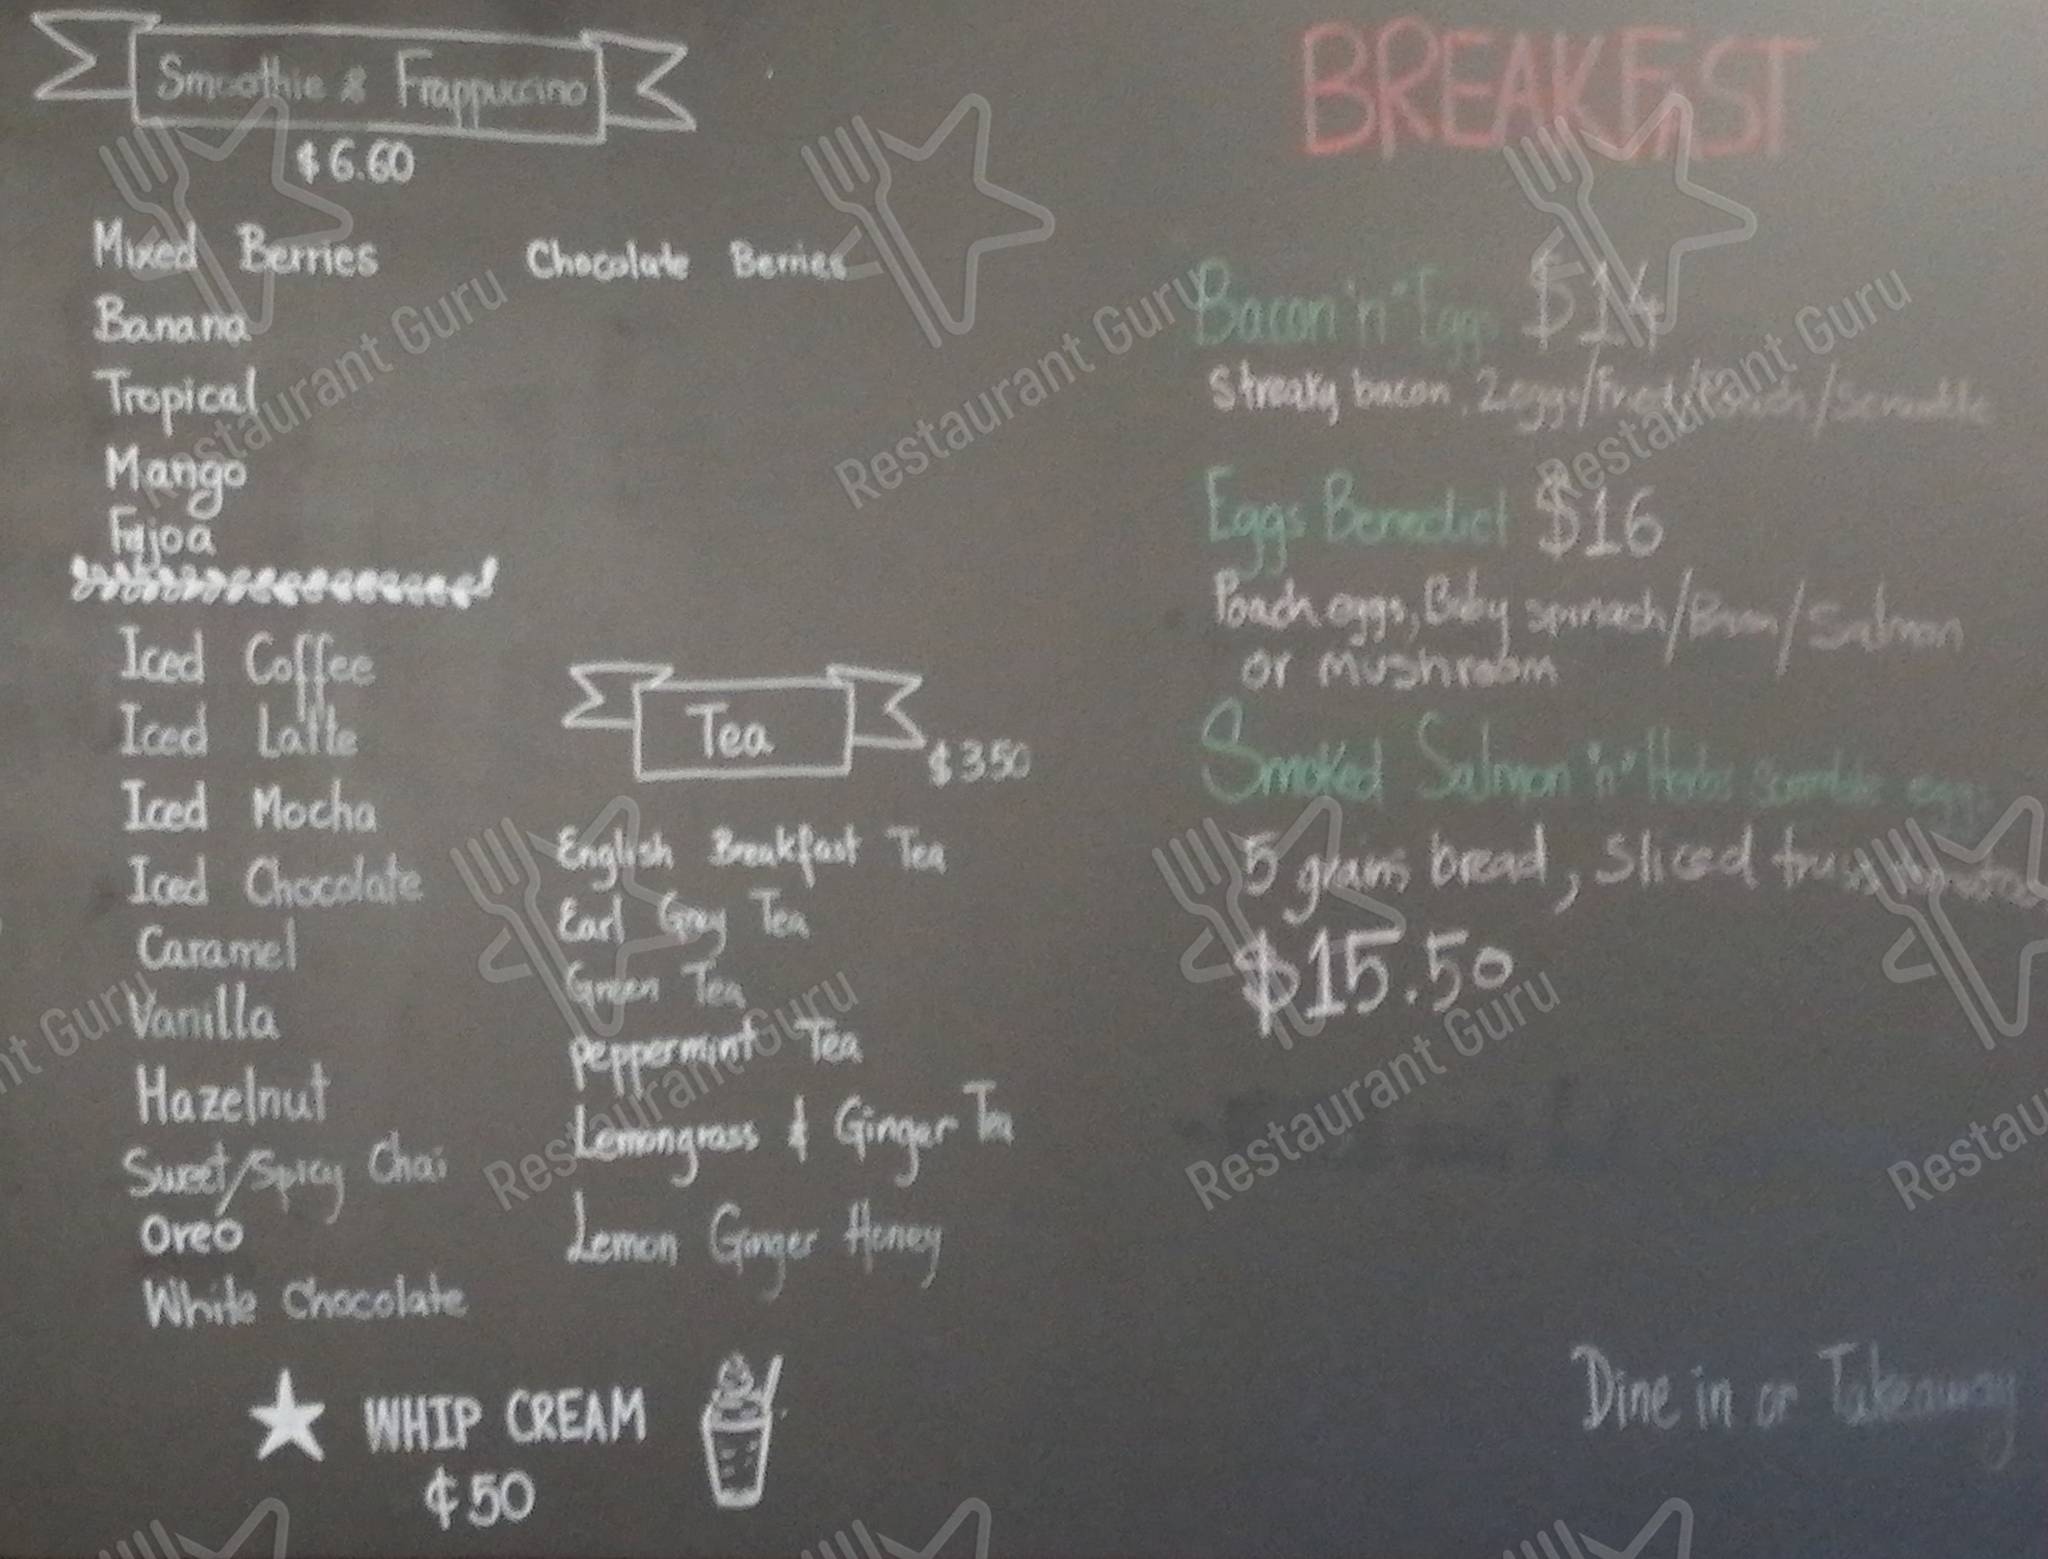 Smoothie & Frappuccino
$6.60
Mixed Berries
Chocolate Berries
Banana
Tropical
Mango
Fijoa
Iced Coffee
Iced Latte
Iced Mocha
Iced Chocolate
Caramel
Vanilla
Hazelnut
Sweet/Spicy Chai
Oreo
White Chocolate
WHIP CREAM
¢50
Tea
$3.50
English Breakfast Tea
Earl Gray Tea
Green Tea
Peppermint Tea
Lemongrass & Ginger Tea
Lemon Ginger Honey
BREAKFAST
Bacon "n" Eggs $14
Streaky bacon, 2 eggs/Fried/Poach/Scramble
Eggs Benedict $16
Poach eggs, Baby spinach/Bacon/Salmon
or Mushroom
Smoked Salmon "n" Herbs scramble eggs
5 grains bread, Sliced truss tomatoes
$15.50
Dine in or Takeaway
Restaurant Guru
Restaurant Guru
Restaurant Guru
Restaurant Guru
Restaurant Guru